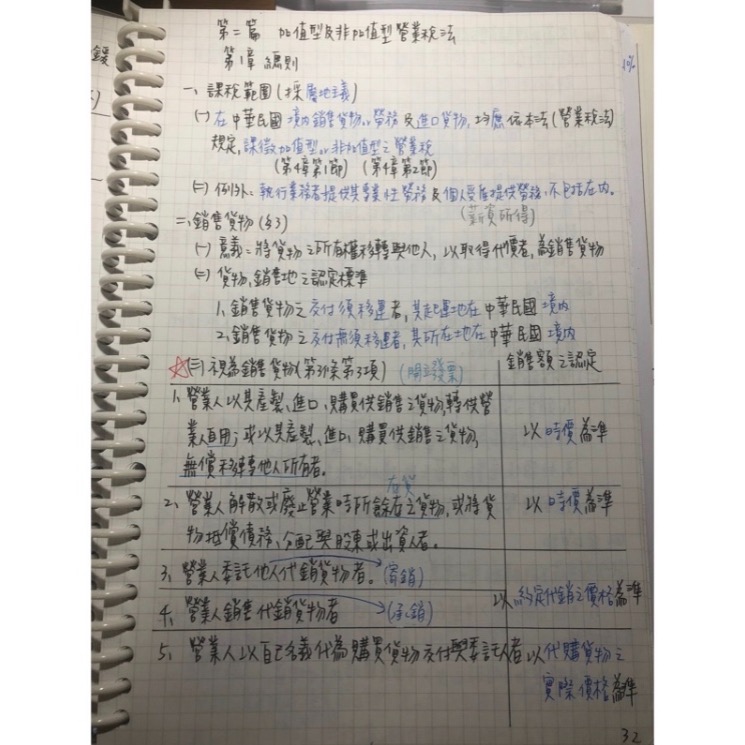 第二篇 加值型及非加值型營業稅法
第1章 總則
10%
一、課稅範圍(採屬地主義)
㈠在中華民國境內銷售貨物or勞務及進口貨物,均應依本法(營業稅法)
規定,課徵加值型or非加值型之營業稅
(第4章第1節) (第4章第2節)
㈡例外:執行業務者提供其專業性勞務及個人受雇提供勞務,不包括在內。
(薪資所得)
二、銷售貨物(§3)
㈠意義:將貨物之所有權移轉與他人,以取得代價者,為銷售貨物
㈡貨物銷售地之認定標準
1、銷售貨物之交付須移運者,其起運地在中華民國境內
2、銷售貨物之交付無須移運者,其所在地在中華民國境內
☆㈢視為銷售貨物(第3條第3項) (開立發票) 銷售額之認定
1、營業人以其產製、進口、購買供銷售之貨物,轉供營
業人自用;或以其產製、進口、購買供銷售之貨物,
無償移轉他人所有者。
以時價為準
存貨
2、營業人解散或廢止營業時所餘存之貨物,或將貨
物抵償債務、分配與股東或出資人者。
以時價為準
3、營業人委託他人代銷貨物者。(寄銷)
4、營業人銷售代銷貨物者 (承銷)
以約定代銷之價格為準
5、營業人以自己名義代為購買貨物交付與委託人者
以代購貨物之
實際價格為準
32